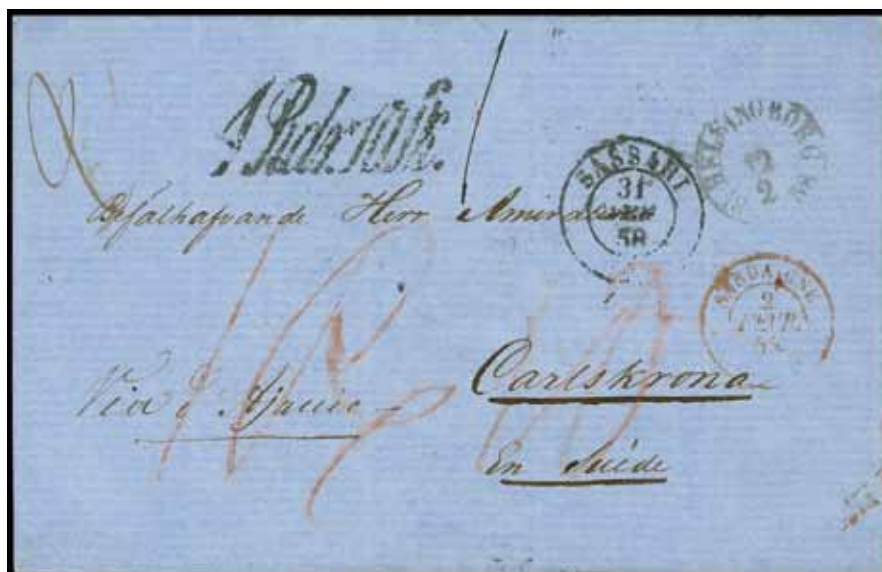 SASSARI
31
GEN
58
HELSINGBORG
12
2
Befälhafvande Herr Amiral
SARDAIGNE
2
FEVR.
58
Via d'Ajaccio
Carlskrona
En Suède